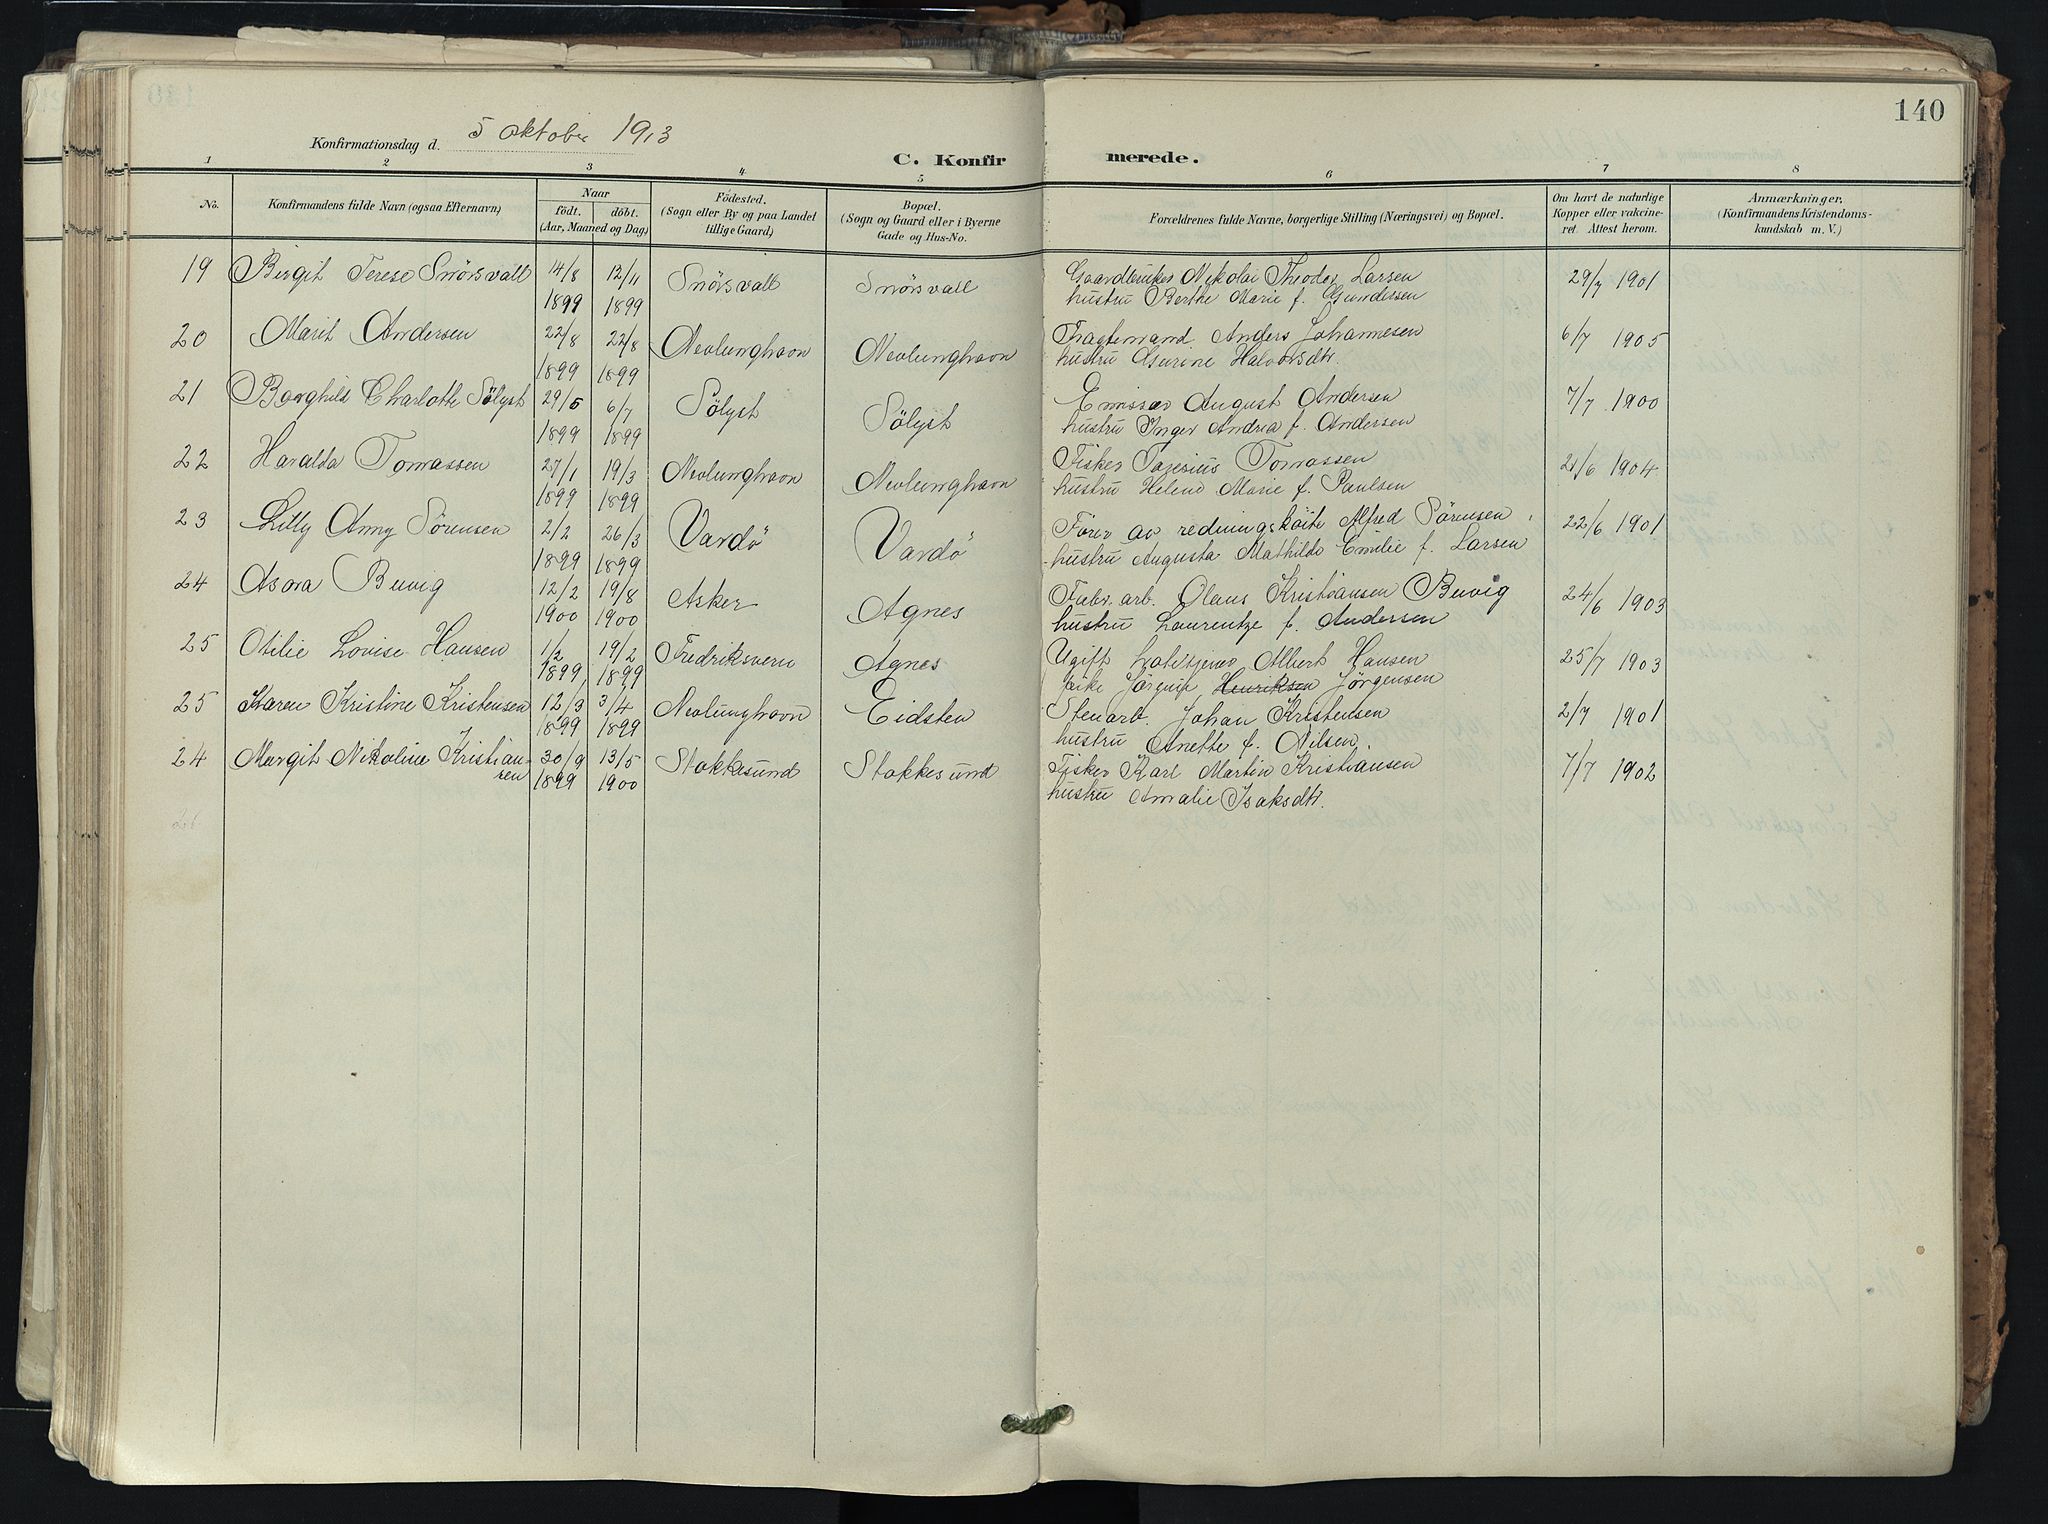 140
Konfirmationsdag d. 5 oktober 1913
C. Konfirmerede.
1 2 3 4 5 6 7 8
No. Konfirmandens fulde Navn (ogsaa Efternavn) Naar født. døbt. (Aar, Maaned og Dag) Fødested. (Sogn eller By og paa Landet tillige Gaard) Bopæl. (Sogn og Gaard eller i Byerne Gade og Hus-No. Forældrenes fulde Navne, borgerlige Stilling (Næringsvei) og Bopæl. Om havt de naturlige Kopper eller vakcineret. Attest herom. Anmærkninger. (Konfirmandens Kristendomskundskab m. V.)
19 Birgit Terese Snørsvall 14/8 12/11 Snørsvall Snørsvall Gaardbruker Nikolai Theodor Larsen 29/7 1901
1899 1899 hustru Berthe Marie f. Gundersen
20 Marit Andersen 22/8 22/8 Nevlunghavn Nevlunghavn Anders Johannesen 6/7 1905
1899 1899 hustru Gurine Halvorsdtr.
21 Borghild Charlotte Sølyst 29/5 6/7 Sølyst Sølyst Emissær August Andersen 7/7 1900
1899 1899 hustru Inger Andrea f. Andersen
22 Haralda Tomassen 27/1 19/3 Nevlunghavn Nevlunghavn Fisker Tomassen 21/6 1904
1899 1899 hustru Helene Marie f. Paulsen
23 Lilly Anny Sørensen 2/2 26/3 Vardø Vardø Fører av redningskøite Alfred Sørensen 22/6 1901
1899 1899 hustru Augusta Mathilde Emilie f. Larsen
24 Asora Buvig 12/2 19/8 Asker Agnes Fabr. arb. Olaus Kristiansen Buvig 24/6 1903
1900 1900 hustru Laurentze f. Andersen
25 Otilie Lovise Hansen 1/2 19/2 Fredriksvern Agnes Ugift Albert Hansen 25/7 1903
1899 1899 pike Henriksen Jørgensen
25 Karen Kristine Kristensen 12/3 3/4 Nevlunghavn Eidsten Stenarb. Johan Kristensen 2/7 1901
1899 1899 hustru Anette f. Nilsen.
24 Margit Nikoline Kristiansen 30/9 13/5 Stokkesund Stokkesund Fisker Karl Martin Kristiansen 7/7 1902
1899 1900 hustru Amalie Isaksdtr.